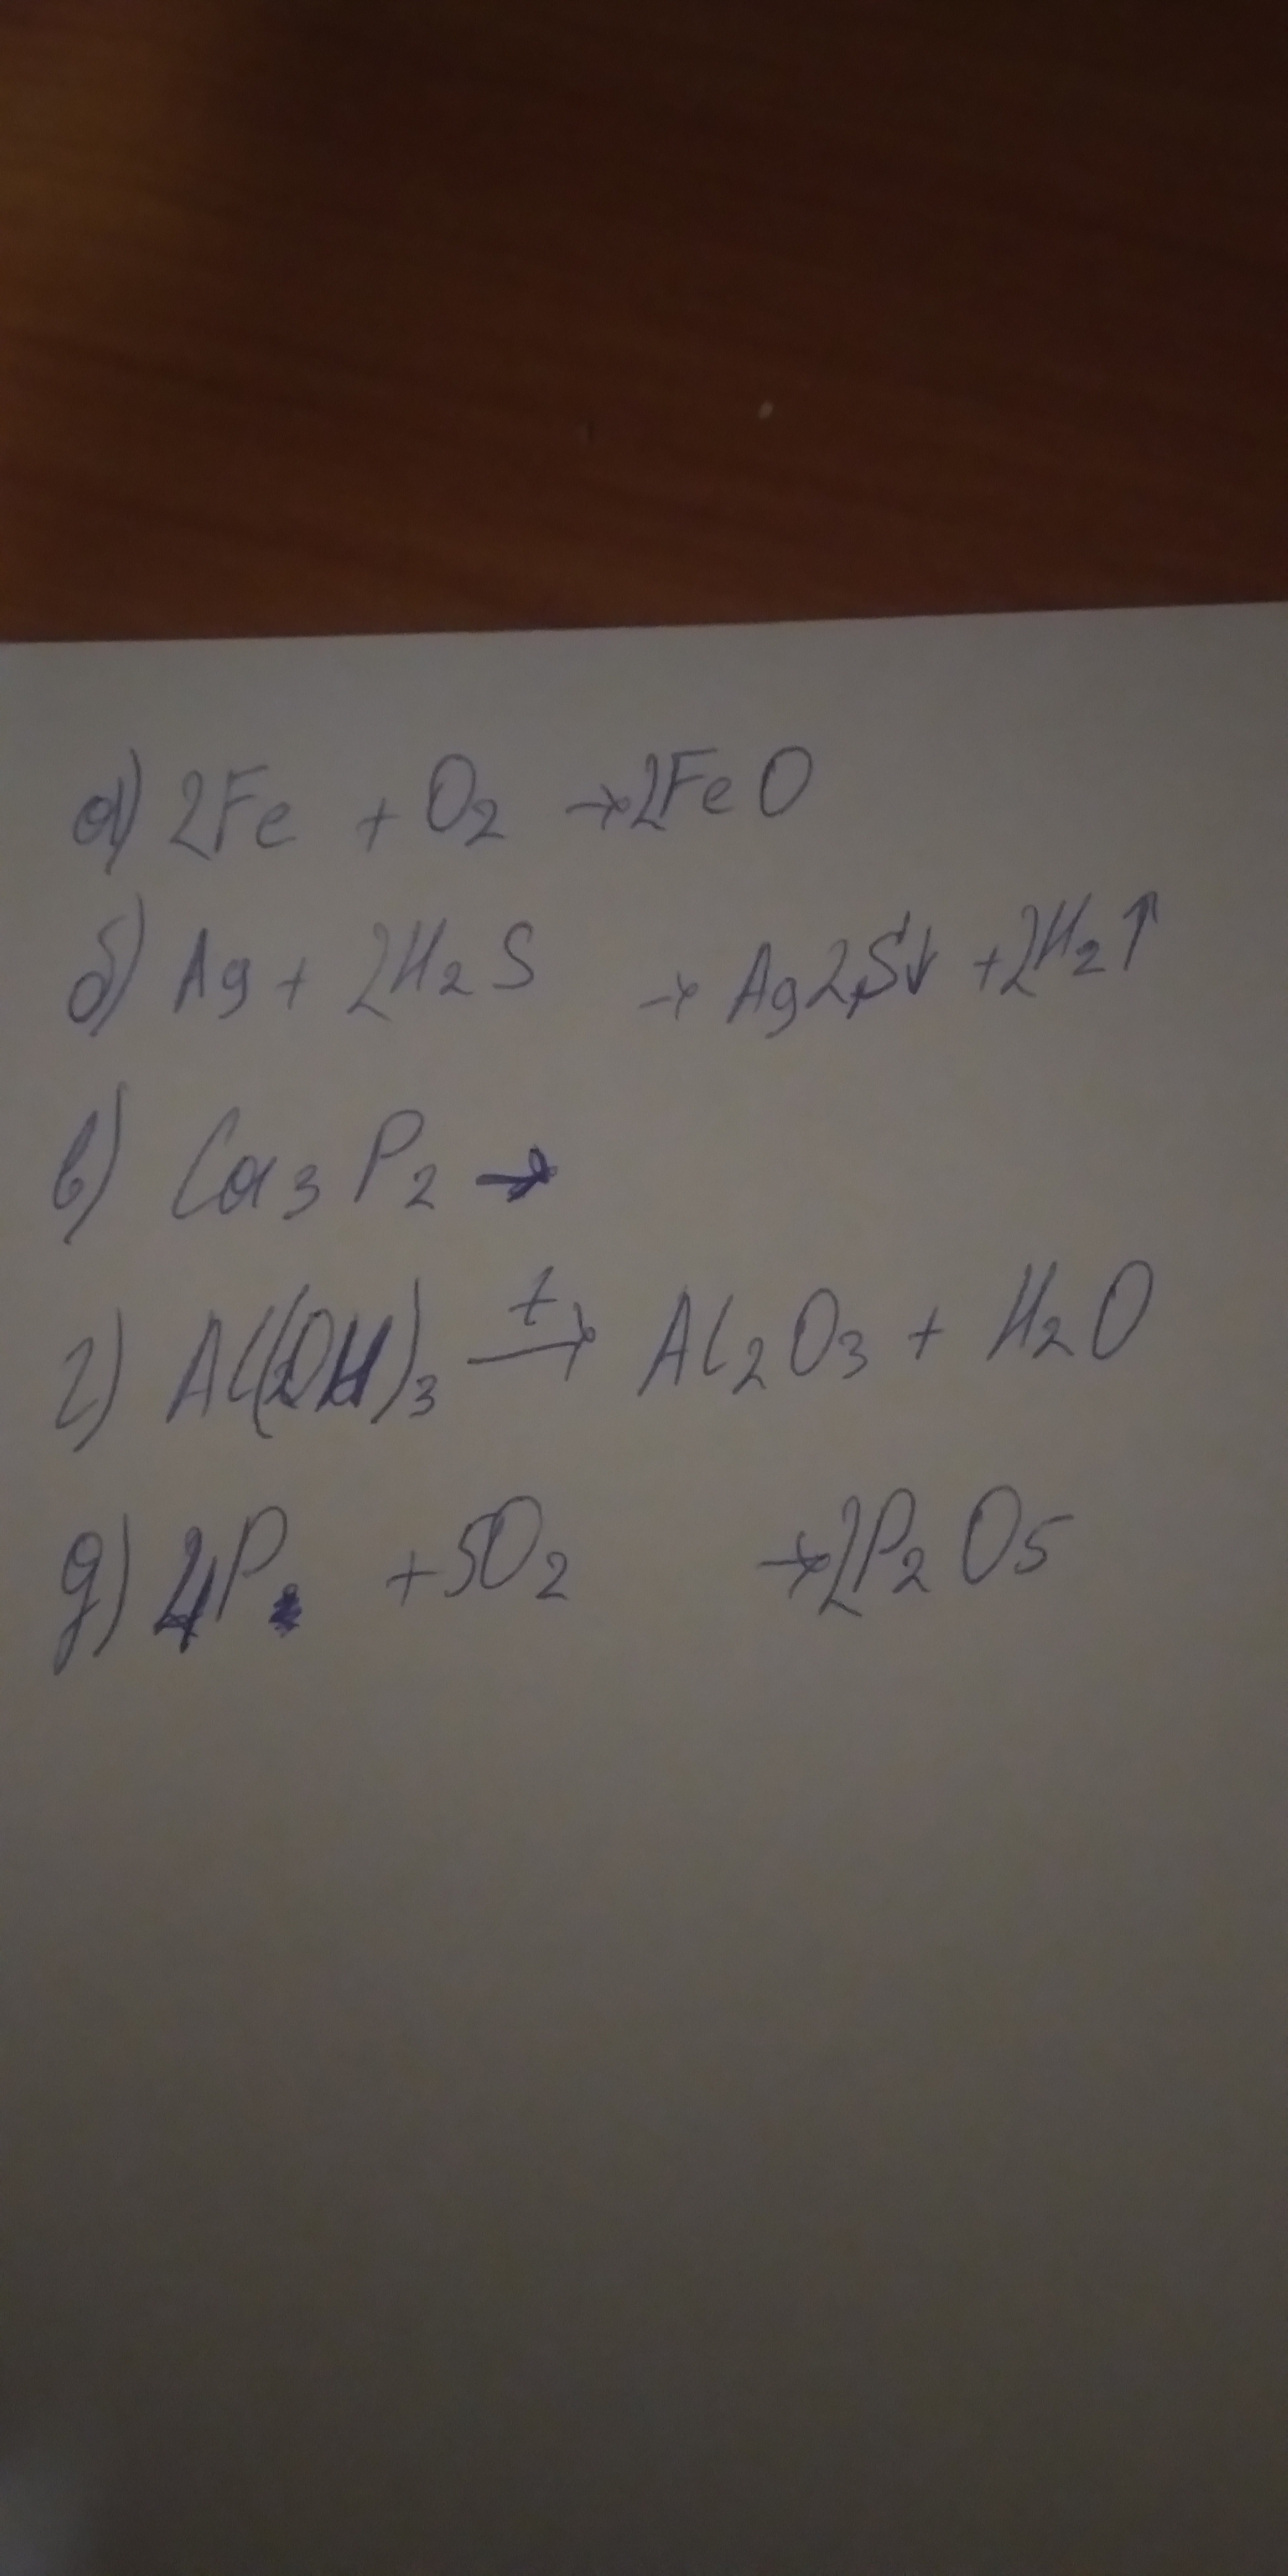 а) 2Fe + O₂ → 2FeO
б) Ag + 2H₂S → Ag2S↓ + 2H₂↑
в) Ca₃P₂ →
г) Al(OH)₃ →ᵗ Al₂O₃ + H₂O
д) 4P + 5O₂ → 2P₂O₅